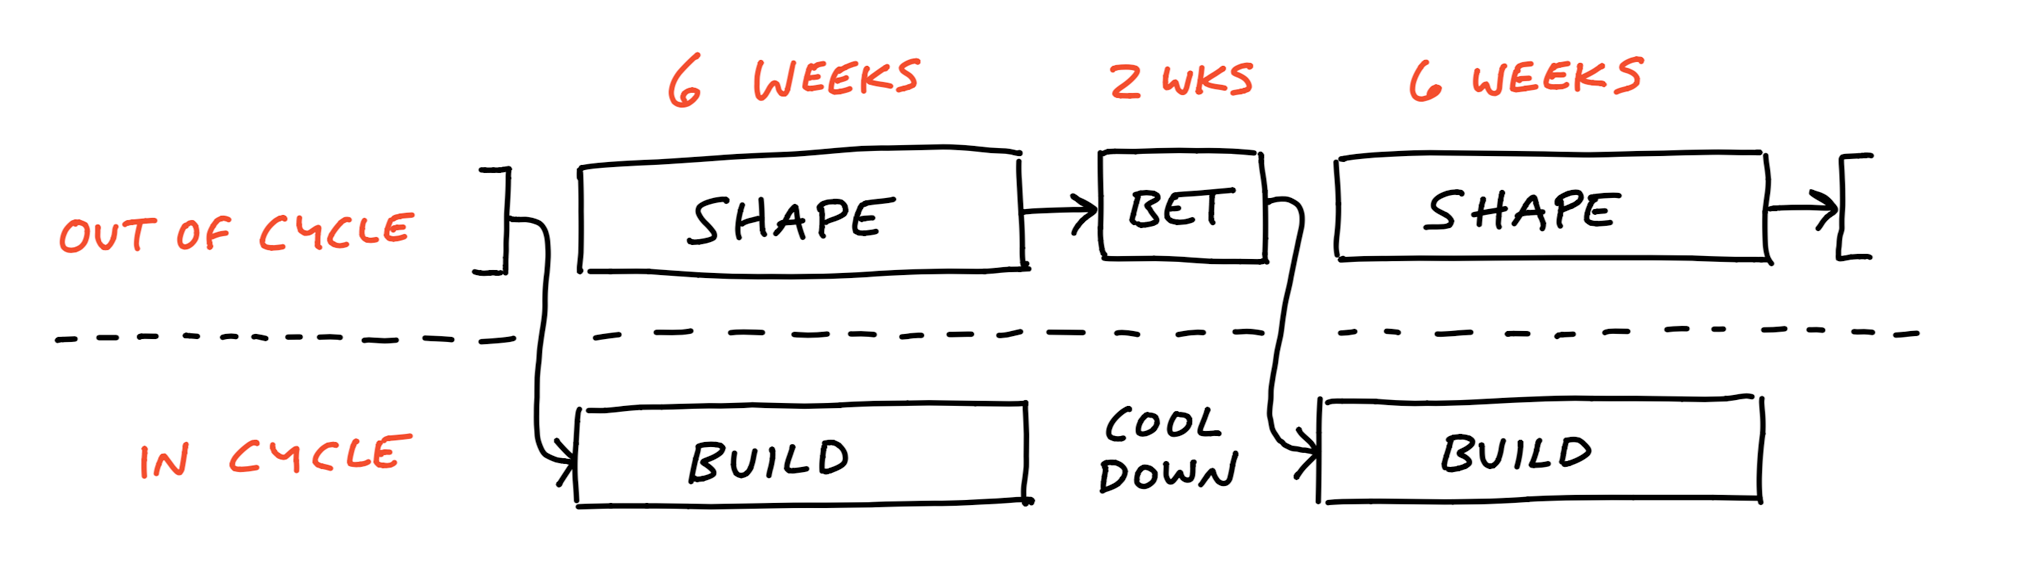 6 WEEKS
2 WKS
6 WEEKS
OUT OF CYCLE
SHAPE
BET
SHAPE
IN CYCLE
BUILD
COOL
DOWN
BUILD